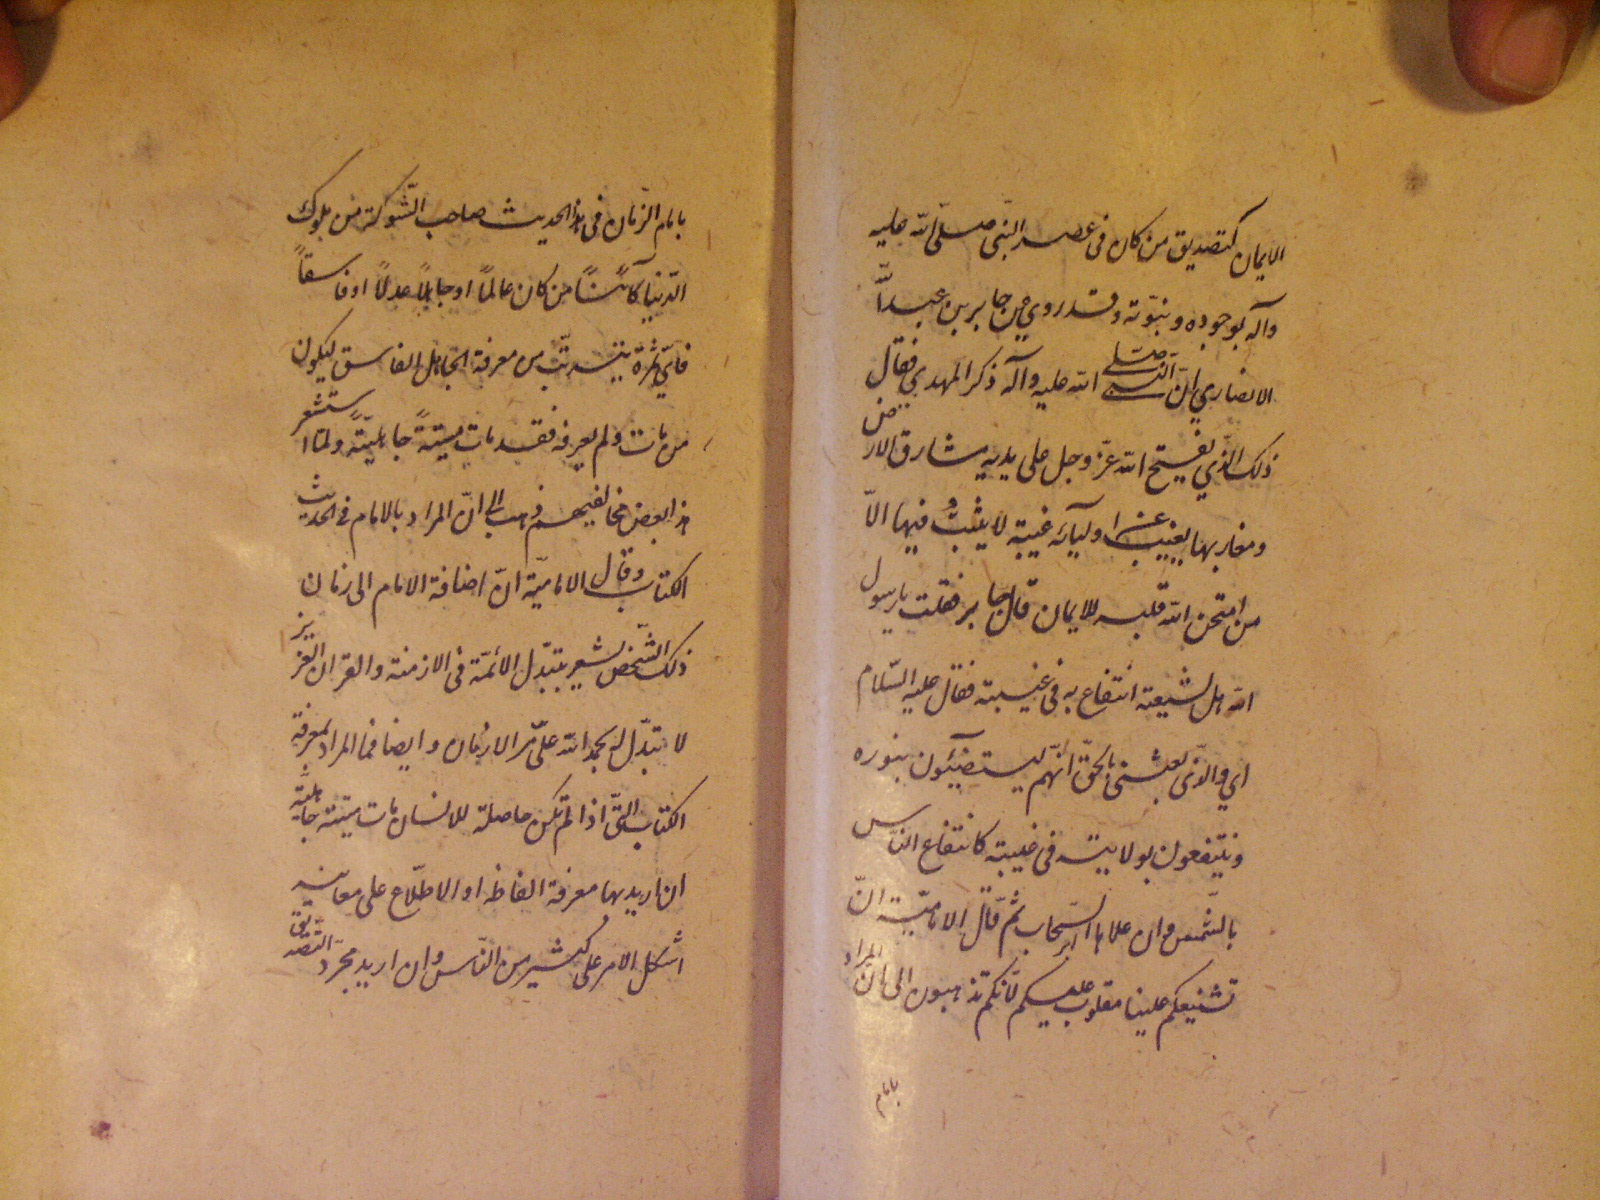 الايمان كتصديق من كان في عصر النبي صلّى الله عليه
وآله بوجوده ونبوّته وقد روي عن جابر بن عبد الله
الانصاري انّ النبي صلّى الله عليه وآله ذكر المهدي فقال
ذلك الذي يفتح الله عزّ وجل على يديه مشارق الارض
ومغاربها يغيب عن اوليآئه غيبة لا يثبت فيها الاّ
من امتحن الله قلبه للايمان قال جابر فقلت يا رسول
الله هل لشيعته انتفاع به في غيبته فقال عليه السّلام
اي والذي بعثني بالحقّ انّهم ليستضيئون بنوره
وينتفعون بولايته في غيبته كانتفاع النّاس
بالشّمس وان علاها السّحاب ثم قال الاماميّة انّ
تشنيعكم علينا مقلوب عليكم لانّكم تذهبون الى انّ المراد
بامام
بامام الزّمان في هذا الحديث صاحب الشّوكة من ملوك
الدّنيا كآئنًا من كان عالمًا او جاهلاً عدلاً او فاسقاً
فايّ ثمرة يترتّب من معرفة الجاهل الفاسق ليكون
من مات ولم يعرفه فقد مات ميتةً جاهليّةً ولمّا استشعر
هذا بعض مخالفيهم ذهب الى انّ المراد بالامام في الحديث
الكتاب وقال الاماميّة انّ اضافة الامام الى زمان
ذلك الشّخص يشعر بتبدّل الائمّة في الازمنة والقرآن العزيز
لا تبدّل له بحمد الله على مرّ الازمان وايضا فما المراد بمعرفة
الكتاب التّي اذا لم تكن حاصلة للانسان مات ميتة جاهليّة
ان اريد بها معرفة الفاظه او الاطّلاع على معانيه
اشكل الامر على كثير من النّاس وان اريد مجرّد التّصديق